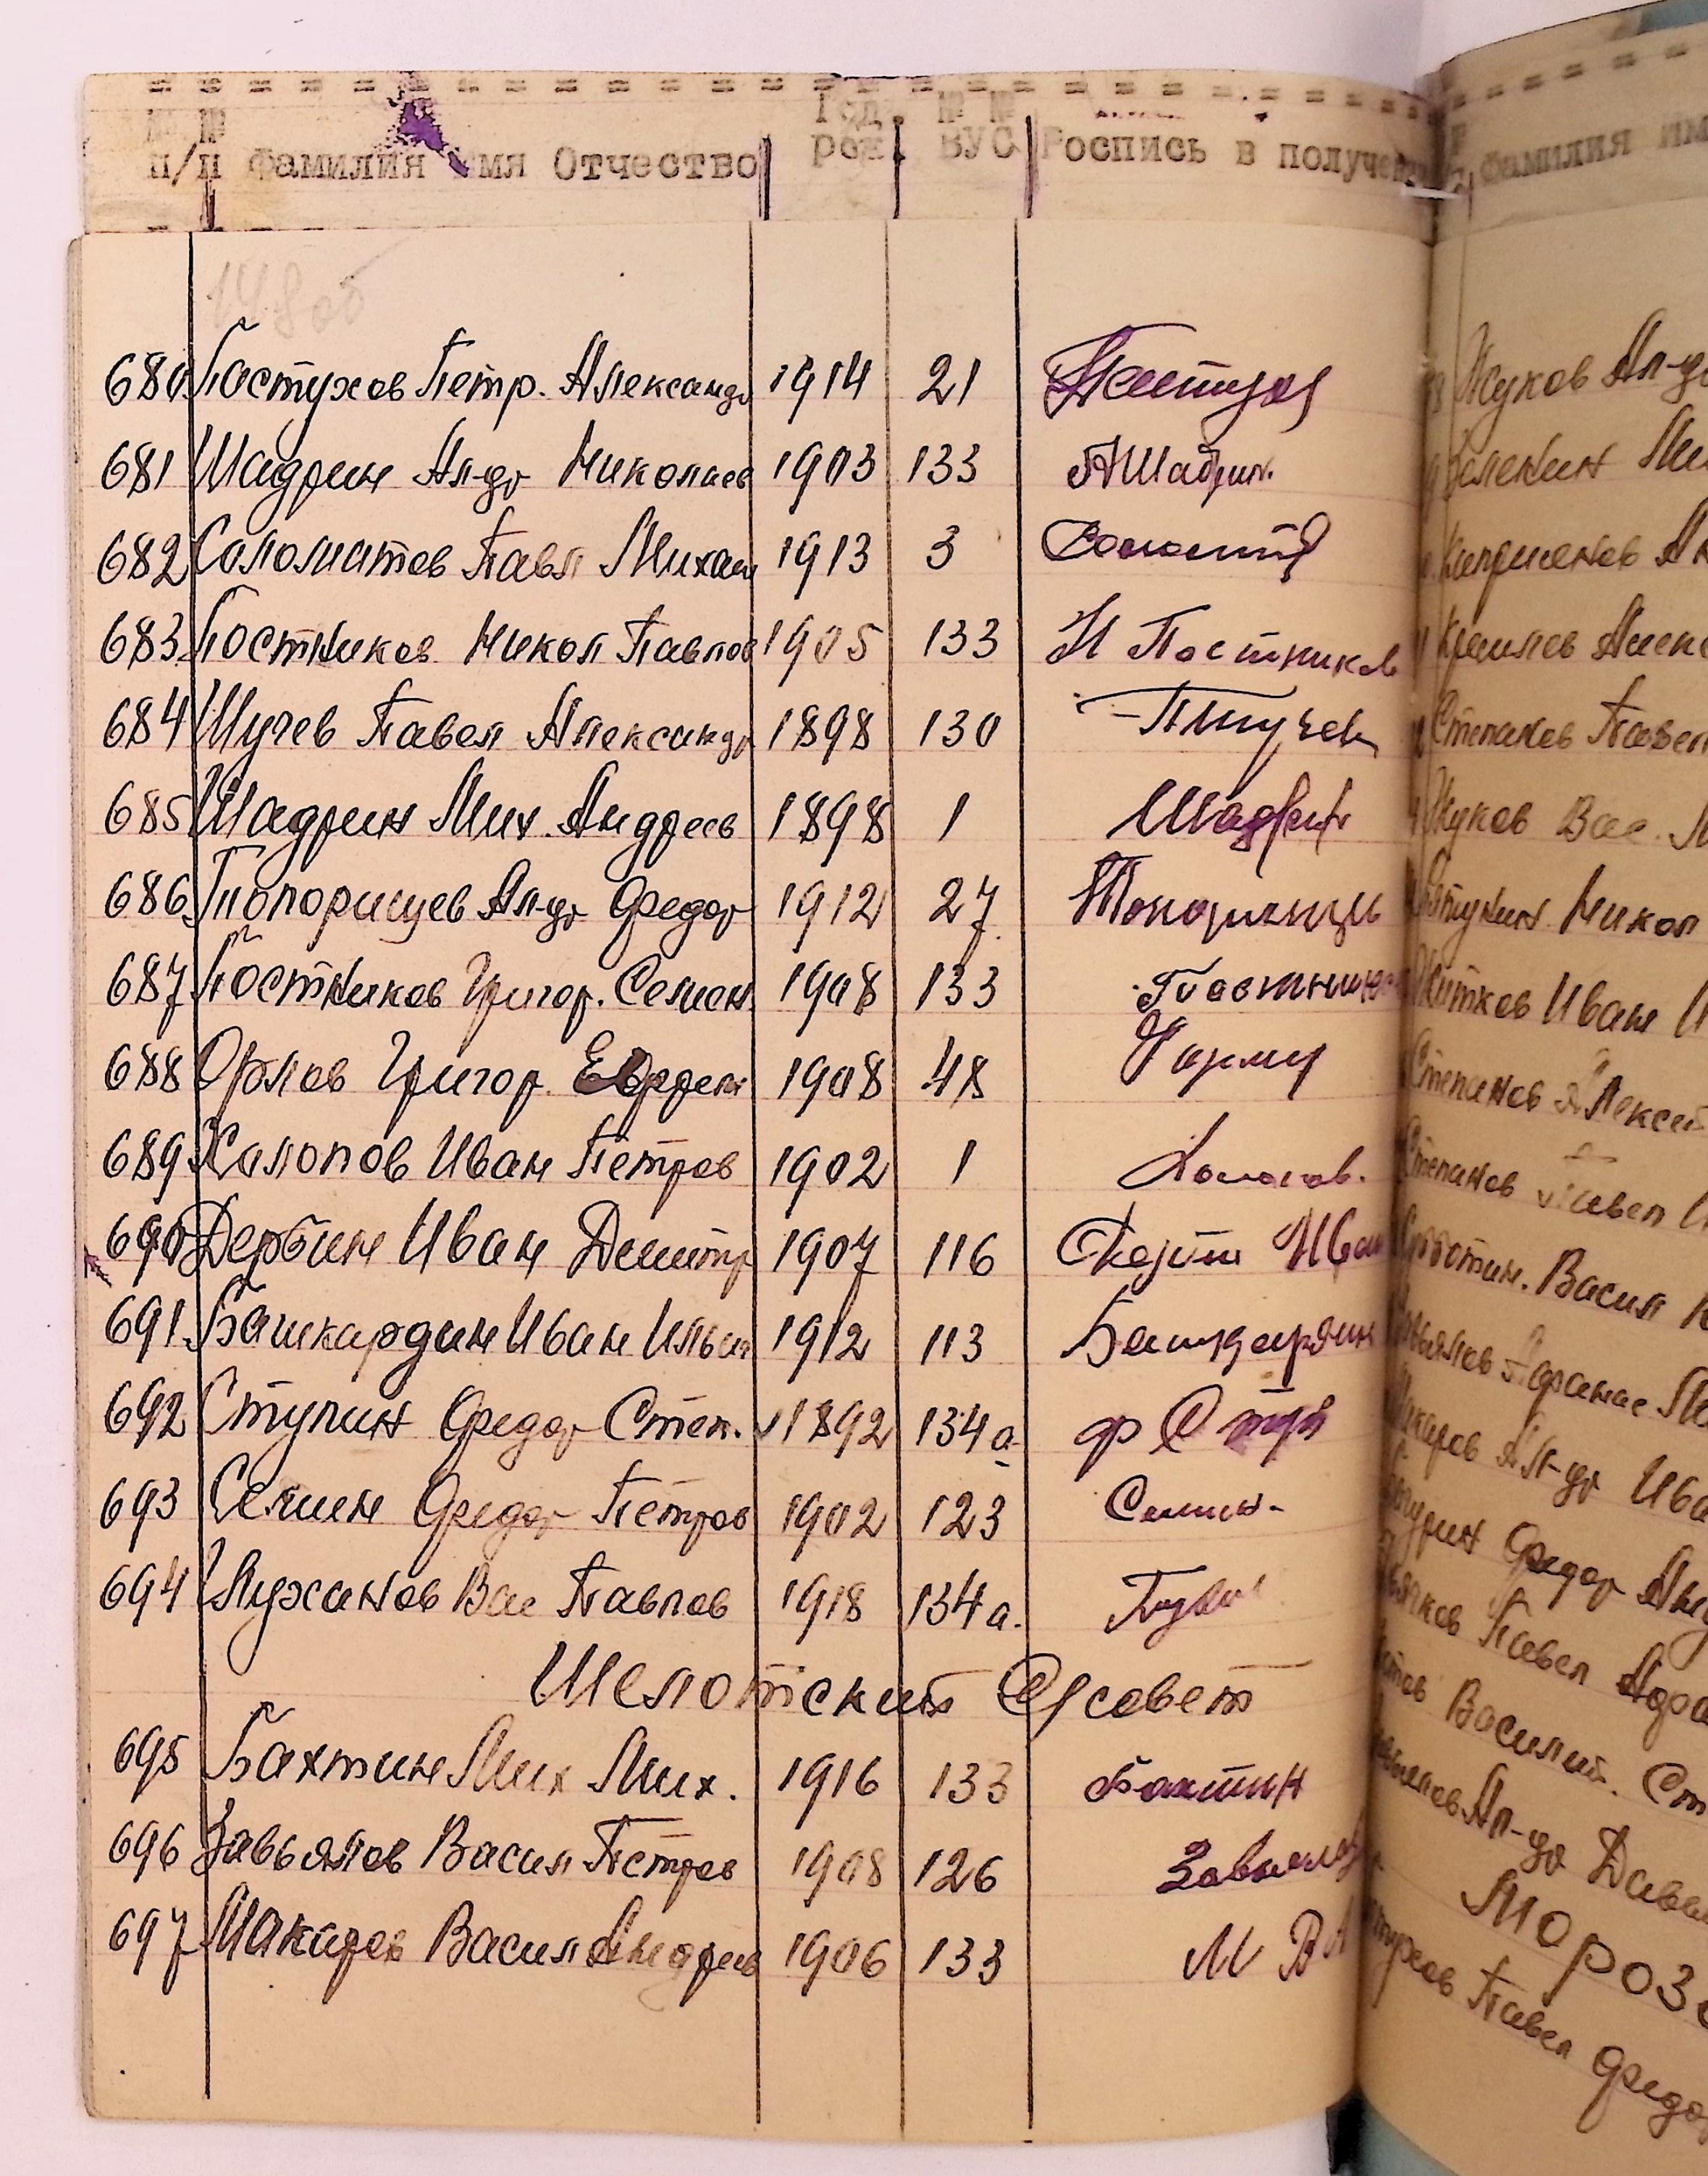 № № п/п Фамилия Имя Отчество Год. рож. № № ВУС Роспись в получе
148об
680 Пастухов Петр. Александр 1914 21 Пастухов
681 Шадрин Ал-др Николаев 1903 133 АШадрин.
682 Соломатов Павл Михаил 1913 3
683 Постников Никол Павлов 1905 133 Н Постников
684 Шучев Павел Александр 1898 130
685 Шадрин Мих. Андреев 1898 1 Шадрин
686 Топорищев Ал-др Федор 1912 27 Топорищев
687 Постников Григор. Семен. 1908 133 Постников
688 Орлов Григор. 1908 48
689 Халопов Иван Петров 1902 1
690 Дербин Иван Дмитр 1907 116 Иван
691 Башкардин Иван Ильич 1912 113 Башкардин
692 Ступин Федор Степ. 1892 134а ф Ступ
693 Семин Федор Петров 1902 123 Семин
694 Пужанов Вас Павлов 1918 134а.
Шелотский С/совет
695 Бахтин Мих Мих. 1916 133 Бахтин
696 Завьялов Васил Петров 1908 126 Завьялов
697 Макаров Васил Андреев 1906 133 М В А
Фамилия им
Жуков Ал-др
Степанов Павел
Жуков Вас. М
Никол
Иван И
Степанов Алексей
Степанов Павел
Васил
Афанас Ми
Макаров Ал-др Ива
Федор Ан
Павел
Василий. Ст
Ал-др Давы
Мороз
Павел Федор